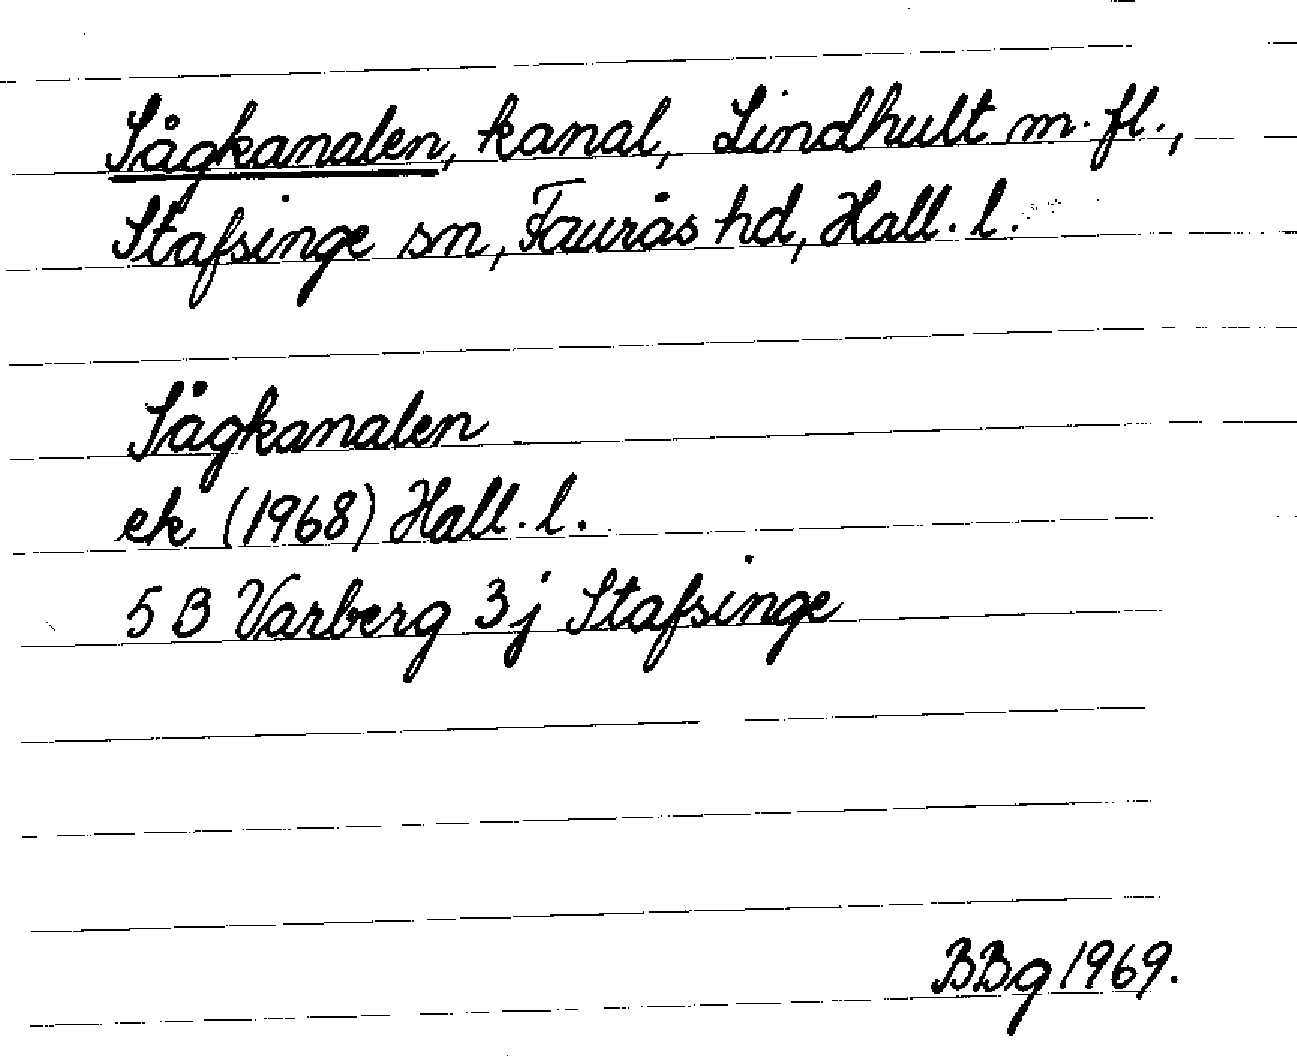 Sågkanalen, kanal, Lindhult m. fl.,
Stafsinge sn, Faurås hd, Hall. l.
Sågkanalen
ek (1968) Hall. l.
5 B Varberg 3j Stafsinge
BBg 1969.